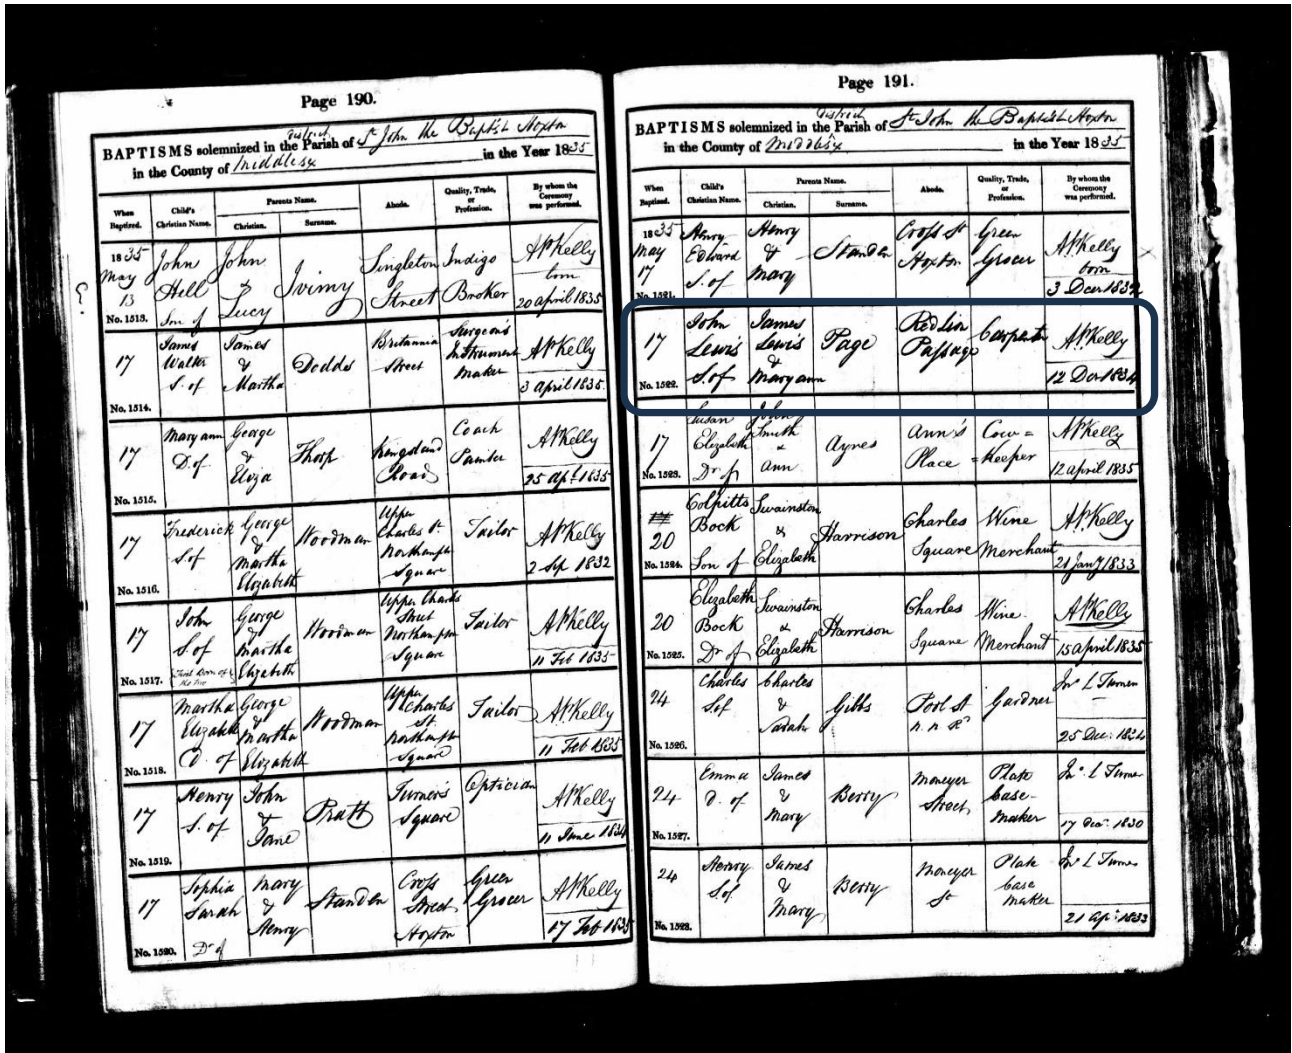 Page 190.
BAPTISMS solemnized in the Parish of St John the Baptist Hoxton
district
in the County of Middlesex in the Year 1835
When Baptized.
Child's Christian Name.
Parents Name.
Christian.
Surname.
Abode.
Quality, Trade, or Profession.
By whom the Ceremony was performed.
1835 May 13
No. 1513.
John Hell Son of
John & Lucy
Ivimy
Singleton Street
Indigo Broker
APKelly
born
20 april 1835
17
No. 1514.
James Walter S. of
James & Martha
Dodds
Britannia Street
Surgeon's Instrument Maker
APKelly
3 april 1835
17
No. 1515.
Mary ann D. of
George & Eliza
Thorp
Kingsland Road
Coach Painter
APKelly
25 apl 1835
17
No. 1516.
Frederick S. of
George & Martha Elizabeth
Woodman
Upper Charles St. Northampton Square
Tailor
APKelly
2 Sep 1832
17
No. 1517.
John S of
First Born of
George & Martha Elizabeth
Woodman
Upper Charles Street Northampton Square
Tailor
APKelly
11 Feb 1835
17
No. 1518.
Martha Elizabeth D. of
George & Martha Elizabeth
Woodman
Upper Charles St. Northampton Square
Tailor
APKelly
11 Feb 1835
17
No. 1519.
Henry S. of
John & Jane
Pratt
Turner's Square
Optician
APKelly
11 June 1834
17
No. 1520.
Sophia Sarah Dr of
Mary & Henry
Standen
Cross Street Hoxton
Green Grocer
APKelly
17 Feb 1835
Page 191.
BAPTISMS solemnized in the Parish of St John the Baptist Hoxton
district
in the County of Middlesex in the Year 1835
When Baptized.
Child's Christian Name.
Parents Name.
Christian.
Surname.
Abode.
Quality, Trade, or Profession.
By whom the Ceremony was performed.
1835 May 17
No. 1521.
Henry Edward S. of
Henry & Mary
Standen
Cross St Hoxton
Green Grocer
APKelly
born
3 Decr 1832
17
No. 1522.
John Lewis S. of
James Lewis & Mary ann
Page
Red Lion Passage
Carpenter
APKelly
12 Decr 1834
17
No. 1523.
Susan Elizabeth Dr of
John Smith & Ann
Ayres
Ann's Place
Cow = = Keeper
APKelly
12 april 1835
17 20
No. 1524.
Colpitts Bock Son of
Swainston & Elizabeth
Harrison
Charles Square
Wine Merchant
APKelly
21 Jany 1833
20
No. 1525.
Elizabeth Bock Dr of
Swainston & Elizabeth
Harrison
Charles Square
Wine Merchant
APKelly
15 april 1835
24
No. 1526.
Charles S. of
Charles & Sarah
Gibbs
Pool St n. n. Rd
Gardner
Jno L Turner
25 Dec. 1834
24
No. 1527.
Emma D. of
James & Mary
Berry
Moneyer Street
Plate Case-maker
Jno L Turner
17 Decr 1830
24
No. 1528.
Henry S. of
James & Mary
Berry
Moneyer St
Plate Case Maker
Jno L Turner
21 Apr. 1833